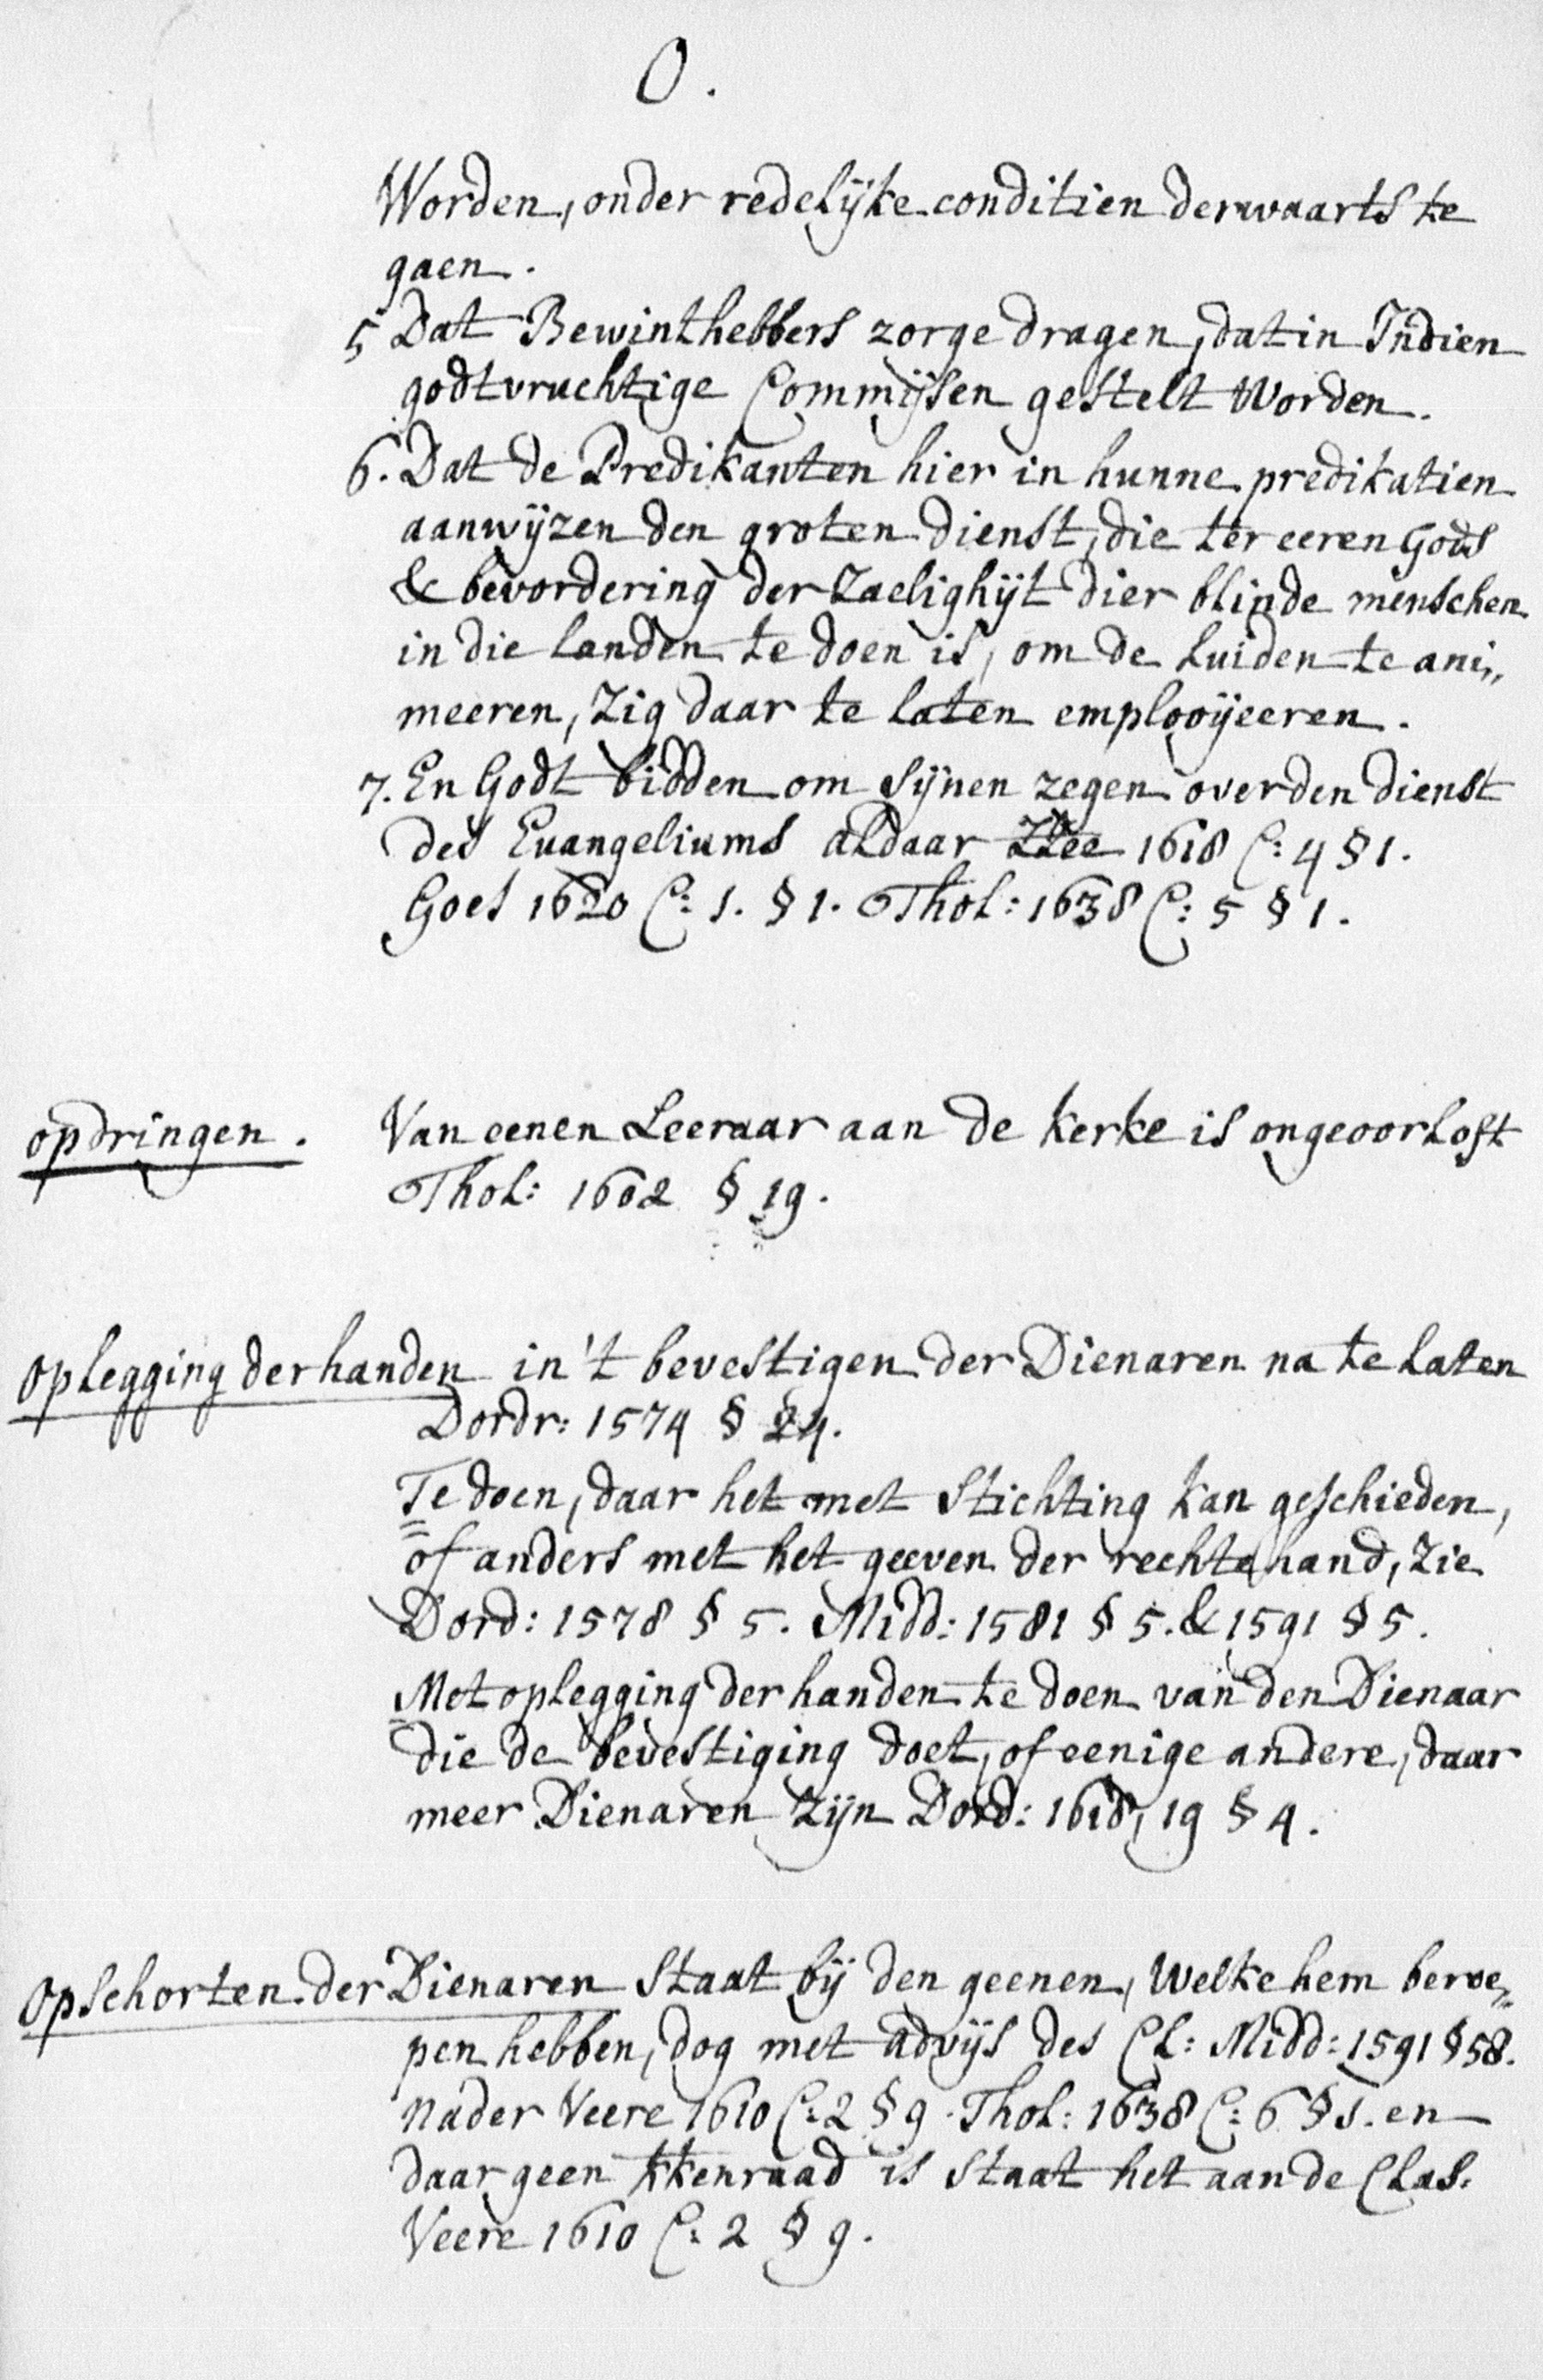 O.
Worden, onder redelijke conditien derwaarts te
gaen.
5 Dat Bewinthebbers zorge dragen, dat in Indien
godtvruchtige Commijsen gestelt Worden.
6. Dat de Predikanten hier in hunne predikatien
aanwijzen den groten dienst, die ter eeren Gods
& bevordering der Zaelighijt dier blinde menschen
in die landen te doen is, om de luiden te ani„
meeren, Zig daar te laten emplooijeeren.
7. En Godt bidden om sijnen zegen over den dienst
des Euangeliums aldaar Zzee 1618 C: 4 § 1.
Goes 1620 C: 1. § 1. Thol: 1638 C: 5 § 1.
opdringen. Van eenen Leeraar aan de kerke is ongeoorloft
Thol: 1602 § 19.
oplegging der handen in 't bevestigen der Dienaren na te laten
Dordr: 1574 § 24.
Te doen, daar het met stichting kan geschieden,
of anders met het geeven der rechtehand, zie
Dord: 1578 § 5. Midd: 1581 § 5. & 1591 § 5.
Met oplegging der handen te doen van den Dienaar
die de bevestiging doet, of eenige andere, daar
meer Dienaren zijn Dord: 1618, 19 § 4.
Opschorten der Dienaren staat bij den geenen, Welke hem beroe„
pen hebben, dog met advijs des Cl: Midd: 1591 § 58.
nader Veere 1610 C: 2 § 9. Thol: 1638 C: 6 § 1. en
daar geen kkenraad is staat het aan de Clas.
Veere 1610 C: 2 § 9.